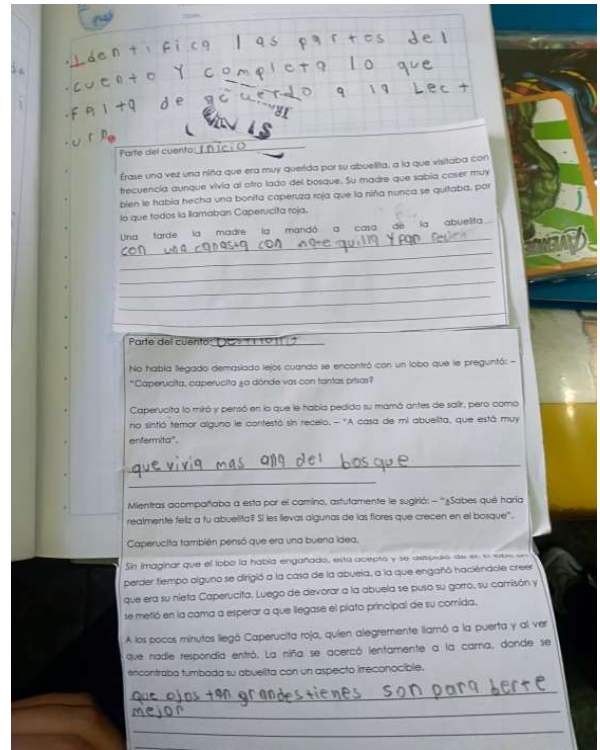 Identifica las partes del
cuento Y completa lo que
falta de acuerdo a la Lect
ura
Parte del cuento: Inicio
Érase una vez una niña que era muy querida por su abuelita, a la que visitaba con
frecuencia aunque vivía al otro lado del bosque. Su madre que sabía coser muy
bien le había hecha una bonita caperuza roja que la niña nunca se quitaba, por
lo que todos la llamaban Caperucita roja.
Una tarde la madre la mandó a casa de la abuelita
con una canasta con mantequilla Y pan
Parte del cuento:
No había llegado demasiado lejos cuando se encontró con un lobo que le preguntó: –
"Caperucita, caperucita ¿a dónde vas con tantas prisas?
Caperucita lo miró y pensó en lo que le había pedido su mamá antes de salir, pero como
no sintió temor alguno le contestó sin recelo. – "A casa de mi abuelita, que está muy
enfermita".
que vivia mas alla del bosque
Mientras acompañaba a esta por el camino, astutamente le sugirió: – "¿Sabes qué haría
realmente feliz a tu abuelita? Si les llevas algunas de las flores que crecen en el bosque".
Caperucita también pensó que era una buena idea.
Sin imaginar que el lobo la había engañado, esta aceptó y se despidió de
perder tiempo alguno se dirigió a la casa de la abuela, a la que engañó haciéndole creer
que era su nieta Caperucita. Luego de devorar a la abuela se puso su gorro, su camisón y
se metió en la cama a esperar a que llegase el plato principal de su comida.
A los pocos minutos llegó Caperucita roja, quien alegremente llamó a la puerta y al ver
que nadie respondía entró. La niña se acercó lentamente a la cama, donde se
encontraba tumbada su abuelita con un aspecto irreconocible.
Que ojos tan grandes tienes son para berte
mejor
AVENGERS